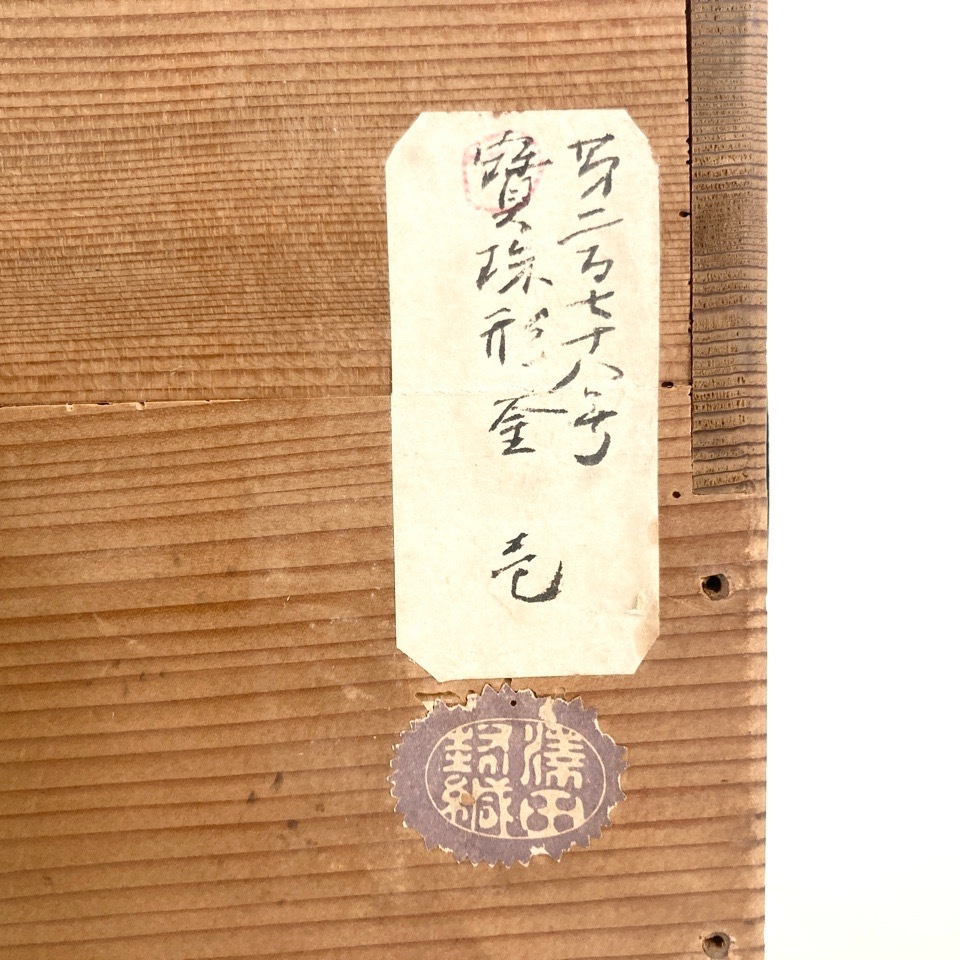 第二百七十八号
寳珠形釜 壱
澤田
封緘